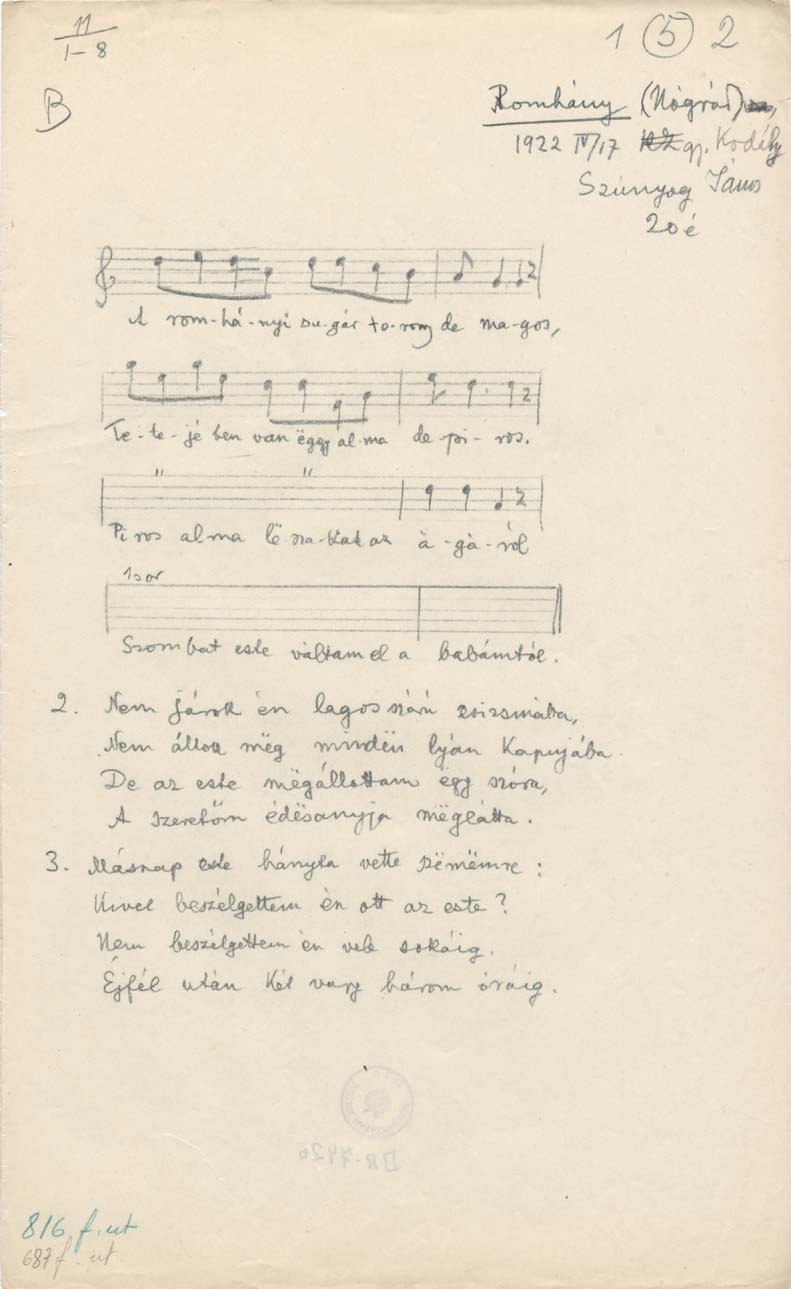 11
1-8
1 5 2
B
Romhány (Nógrád)
1922 IV/17 gy. Kodály
Szúnyog János
20 é
A rom-há-nyi su-gár to-rony de ma-gos,
Te-te-jé ben van ëggy al-ma de pi-ros.
" "
Pi ros alma lë sza-kat az á-gá-ról
1 sor
Szombat este váltam el a babámtól.
2. Nem járok én lagos szárú csizsmába,
Nem állok mëg mindën lyán kapujába.
De az este mëgállottam ëgy szóra,
A szeretőm édësanyja mëglátta.
3. Másnap este hányta vette szëmëmre :
Kivel beszélgettem én ott az este?
Nem beszélgettem én vele sokáig.
Éjfél után két vagy három óráig.
DR-7426
816 f. ut
687 f. ut